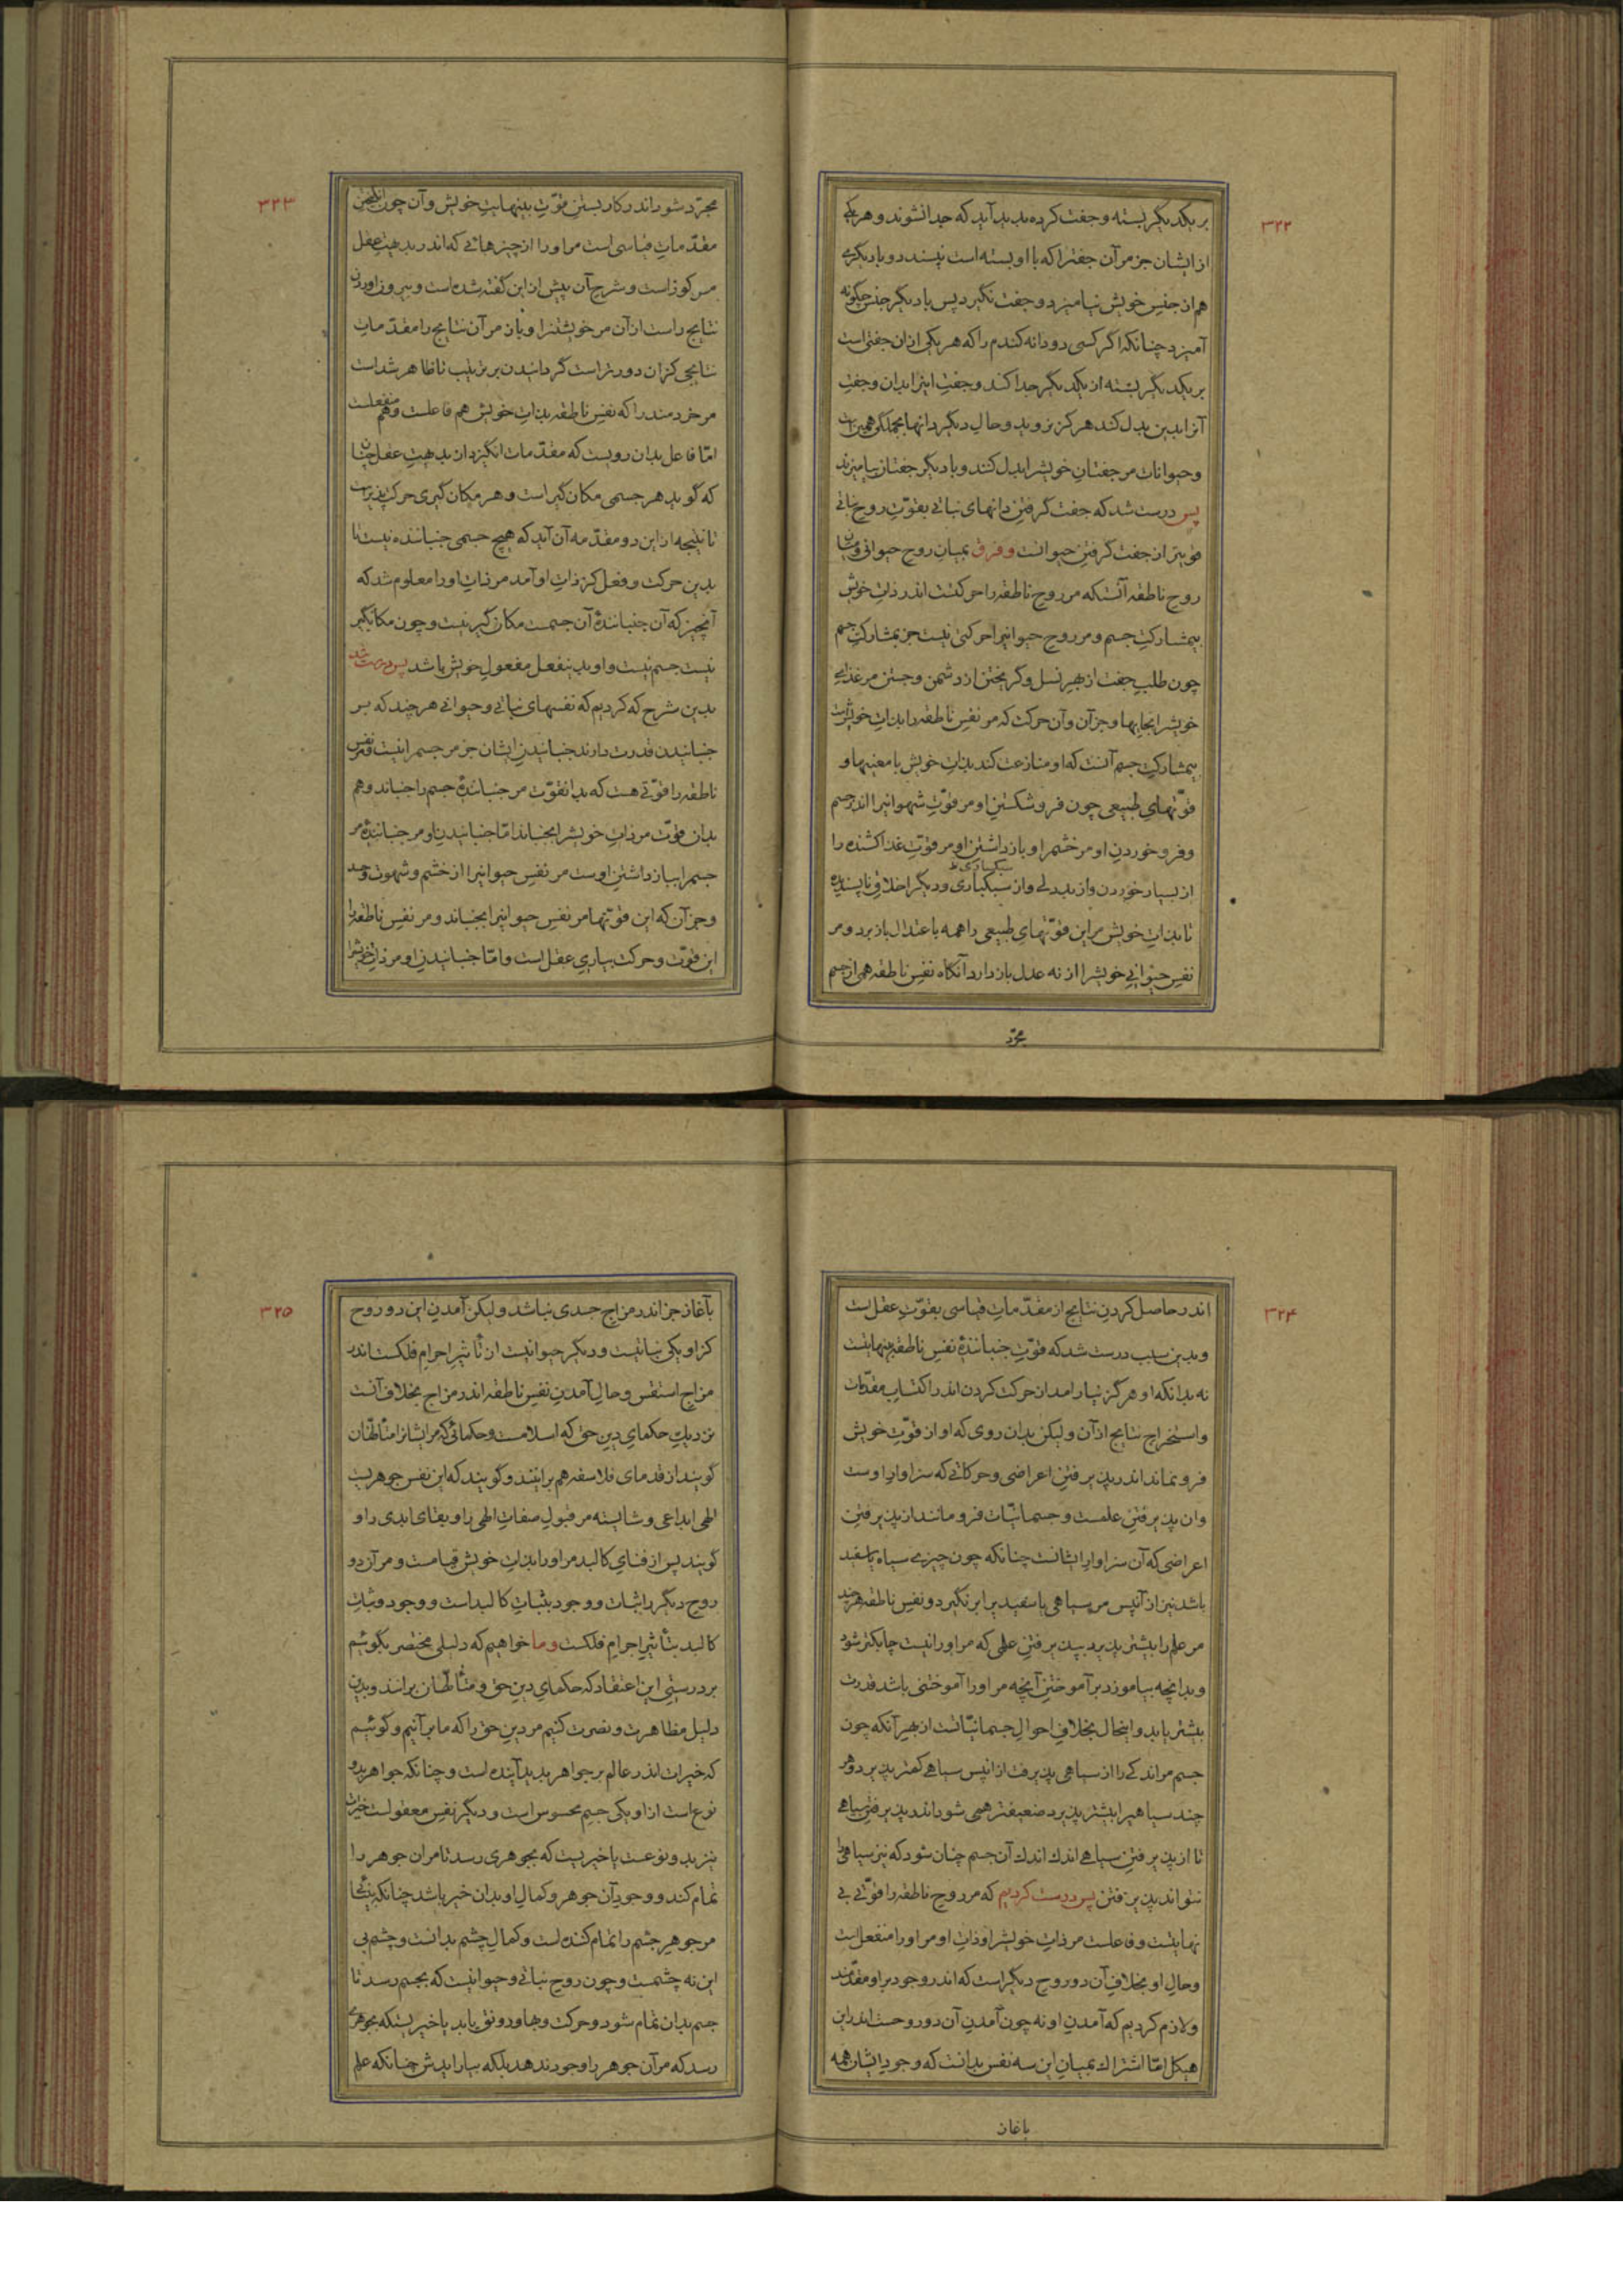 ۳۲۲
بر یکدیگر بسته و جفت کرده پدید آید که جدا نشوند و هر یکی
از ایشان جز مر آن جفت را که با او بسته است نپسندد و با دیگری
هم از جنس خویش نیامیزد و جفت نگیرد پس با دیگر جنس چگونه
آمیزد چنانکه اگر کسی دو دانه گندم را که هر یکی از ان جفتی است
بر یکدیگر بسته از یکدیگر جدا کند و جفت اینرا بدان و جفت
آنرا بدین بدل کند هرگز نروید و حال دیگر دانها بجملگی همین است
و حیوانات مر جفتان خویشرا بدل کنند و با دیگر جفتان بیامیزند
پس درست شد که جفت گرفتن دانهای نباتی بقوّت روح نباتی
قویتر از جفت گرفتن حیوانست و فرق بمیان روح حیوانی و میان
روح ناطقه آنستکه مر روح ناطقه را حرکتست اندر ذات خویش
بیمشارکت جسم و مر روح حیوانیرا حرکتی نیست جز بمشارکت جسم
چون طلب جفت از بهر نسل و گریختن از دشمن و جستن مر غذای
خویشرا بجایها و جز آن و آن حرکت که مر نفس ناطقه را بذات خویش است
بیمشارکت جسم آنست که او منازعت کند بذات خویش با معنیها و
قوّتهای طبیعی چون فرو شکستن او مر قوّت شهوانیرا اندر جسم
و فرو خوردن او مر خشم را و باز داشتن او مر قوّت غذا کشنده را
از بسیار خوردن و از بددلی و از سبکباری و دیگر اخلاق ناپسندیده
سبکساری ظ
تا بذات خویش مر این قوّتهای طبیعی را همه باعتدال باز برد و مر
نفس حیوانی خویشرا از نه عدل باز دارد آنگاه نفس ناطقه همی از جسم
مجرّد
۳۲۳
مجرّد شود اندر کار بستن قوّت بینهایت خویش و آن چون انگیختن
مقدّمات قیاسی است مر او را از چیزهائی که اندر بدیهت عقل
مرکوز است و شرح آن پیش از این گفته شده است و بیرون آوردن
نتایج راست از آن مر خویشتنرا و باز مر آن نتایج را مقدّمات
نتایجی کزان دورتر است گردانیدن بر ترتیب تا ظاهر شد است
مر خردمند را که نفس ناطقه بذات خویش هم فاعلست و هم منفعلست
امّا فاعل بدان رویست که مقدّمات انگیزد از بدیهت عقل چنان
که گوید هر جسمی مکان گیر است و هر مکان گیری حرکت پذیر است
تا نتیجه از این دو مقدّمه آن آید که هیچ جسمی جنباننده نیست تا
بدین حرکت و فعل کز ذات او آمد مر ذات او را معلوم شد که
آنچیز که آن جنبانندهٔ آن جسمست مکان گیر نیست و چون مکانگیر
نیست جسم نیست و او بدینفعل مفعول خویش باشد پس درست شد
بدین شرح که کردیم که نفسهای نباتی و حیوانی هر چند که بر
جنبانیدن قدرت دارند جنبانیدن ایشان جز مر جسم را نیست و نفس
ناطقه را قوّتی هست که بدانقوّت مر جنبانندهٔ جسم را جنباند و هم
بدان قوّت مر ذات خویشرا بجنباند امّا جنبانیدن او مر جنبانندهٔ مر
جسم را بباز داشتن اوست مر نفس حیوانیرا از خشم و شهوت و حسد
و جز آن که این قوّتها مر نفس حیوانیرا بجنباند و مر نفس ناطقه را
این قوّت و حرکت بیاری عقل است و امّا جنبانیدن او مر ذات خویشرا
۳۲۴
اندر حاصل کردن نتایج از مقدّمات قیاسی بقوّت عقل است
و بدین سبب درست شد که قوّت جنبانندهٔ نفس ناطقه بینهایتست
نه بدانکه او هرگز نیارامد از حرکت کردن اندر اکتساب مقدّمات
و استخراج نتایج از آن ولیکن بدان روی که او از قوّت خویش
فرو نماند اندر پذیرفتن اعراضی و حرکاتی که سزاوار اوست
وان پذیرفتن علمست و جسمانیّات فرو مانند از پذیرفتن
اعراضی که آن سزاوار ایشانست چنانکه چون چیزی سیاه یا سفید
باشد نیز از آنپس مر سیاهی یا سفید را برنگیرد و نفس ناطقه هر چند
مر علم را بیشتر پذیرد بپذیرفتن علمی که مر او را نیست چابکتر شود
و بدانچه بیاموزد بر آموختن آنچه مر او را آموختنی باشد قدرت
بیشتر یابد و اینحال بخلاف احوال جسمانیّاتست از بهر آنکه چون
جسم مر اندکی را از سیاهی پذیرفت ازانپس سیاهی کمتر پذیرد و هر
چند سیاهیرا بیشتر پذیرد ضعیفتر همی شود اندر پذیرفتن سیاهی
تا از پذیرفتن سیاهی اندک اندک آن جسم چنان شود که نیز سیاهی را
نتواند پذیرفتن پس درست کردیم که مر روح ناطقه را قوّتی بی
نهایتست و فاعلست مر ذات خویشرا و ذات او مر او را منفعل است
و حال او بخلاف آن دو روح دیگر است که اندر وجود بر او مقدّمند
و لازم کردیم که آمدن او نه چون آمدن آن دو روحست اندر این
هیکل امّا اشتراک بمیان این سه نفس بدانست که وجود ایشان همه
باغاز
۳۲۵
بآغاز جز اندر مزاج جسدی نباشد ولیکن آمدن این دو روح
کز او یکی نباتیست و دیگر حیوانیست از تأثیر اجرام فلکست اندر
مزاج استقس و حال آمدن نفس ناطقه اندر مزاج بخلاف آنست
نزدیک حکمای دین حق که اسلامست و حکمائی که مر ایشانرا متألّهان
گویند از قدمای فلاسفه هم برانند و گویند که این نفس جوهریست
الهی ابداعی و شایسته مر قبول صفات الهی را و بقای ابدی را و
گویند پس از فنای کالبد مر او را بذات خویش قیامست و مر آن دو
روح دیگر را ثبات و وجود بثبات کالبد است و وجود و ثبات
کالبد بتأثیر اجرام فلکست و ما خواهیم که دلیلی مختصر بگوئیم
بر درستی این اعتقاد که حکمای دین حق و متألّهان برانند و بدین
دلیل مظاهرت و نصرت کنیم مر دین حق را که ما بر آنیم و گوئیم
که خیرات اندر عالم بر جواهر پدید آینده است و چنانکه جواهر بدو
نوع است از او یکی جسم محسوس است و دیگر نفس معقولست خیرات
نیز بدو نوعست یا خیریست که بجوهری رسد تا مران جوهر را
تمام کند و وجود آن جوهر و کمال او بدان خیر باشد چنانکه بینائی
مر جوهر چشم را تمام کننده است و کمال چشم بدانست و چشم بی
این نه چشمست و چون روح نباتی و حیوانیست که بجسم رسد تا
جسم بدان تمام شود و حرکت و بها و رونق یابد یا خیریستکه بجوهری
رسد که مر آن جوهر را وجود ندهد بلکه بیارایدش چنانکه علم